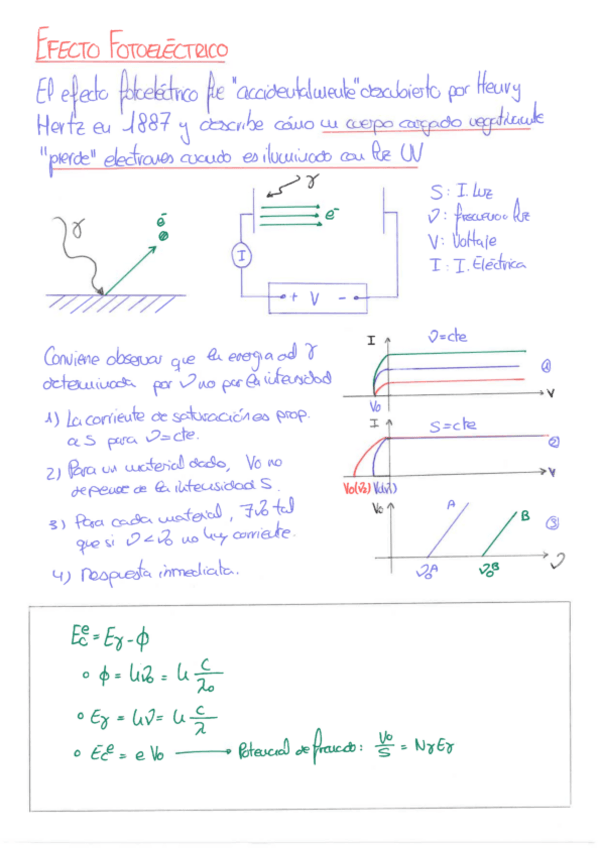 EFECTO FOTOELÉCTRICO
El efecto fotoeléctrico fue "accidentalmente" descubierto por Henry
Hertz en 1887 y describe cómo un cuerpo cargado negativamente
"pierde" electrones cuando es iluminado con luz UV
γ e⁻
γ e⁻
I
+ V -
S: I. Luz
ν: frecuencia luz
V: Voltaje
I: I. Eléctrica
Conviene observar que la energía del γ
determinada por ν no por la intensidad
1) La corriente de saturación es prop.
a S para ν=cte.
2) Para un material dado, Vo no
depende de la intensidad S.
3) Para cada material, ∃ν₀ tal
que si ν<ν₀ no hay corriente.
4) Respuesta inmediata.
I ν=cte
1
V
Vo
I S=cte
2
V
Vo(ν₂) Vo(ν₁)
Vo A B
3
ν₀A ν₀B ν
Ecᵉ = Eγ - ϕ
∘ ϕ = hν₀ = h c/λ₀
∘ Eγ = hν = h c/λ
∘ Ecᵉ = e Vo → Potencial de frenado: Vo/S = NγEγ